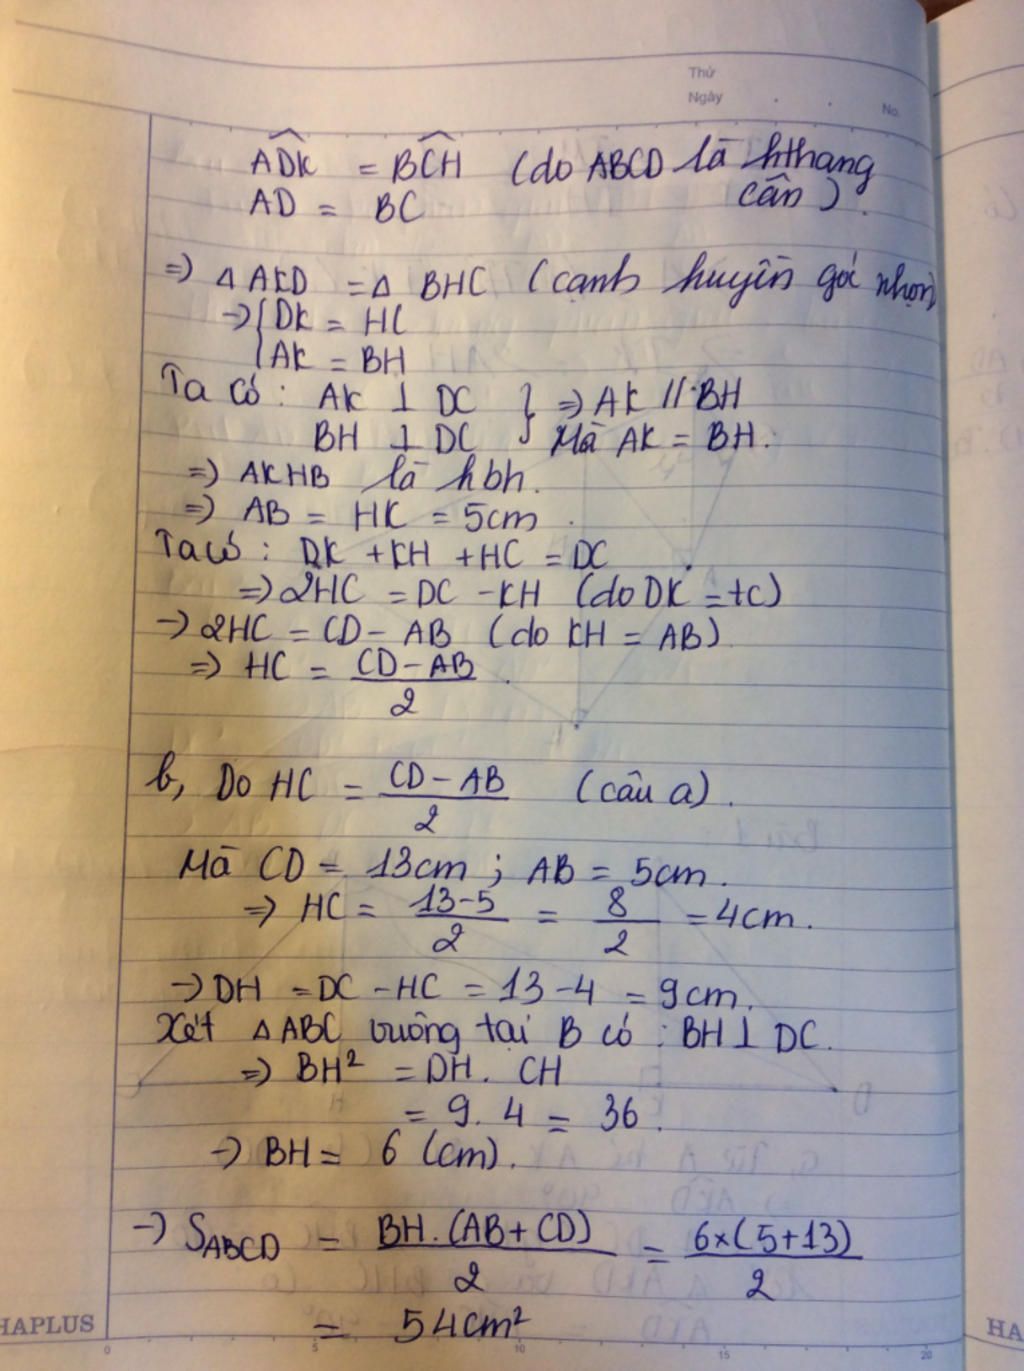 Thứ
Ngày
No.
ADK = BCH (do ABCD là hthang
AD = BC cân).
=> △ AKD = △ BHC (cạnh huyền góc nhọn)
→ { DK = HC
AK = BH
Ta có: AK ⊥ DC } => AK // BH
BH ⊥ DC } Mà AK = BH.
=> AKHB là hbh.
=> AB = HK = 5cm.
Ta có: DK + KH + HC = DC
=> 2HC = DC - KH (do DK = HC)
→ 2HC = CD - AB (do KH = AB)
=> HC = (CD - AB)/2.
b, Do HC = (CD - AB)/2 (câu a).
Mà CD = 13cm; AB = 5cm.
=> HC = (13-5)/2 = 8/2 = 4cm.
→ DH = DC - HC = 13 - 4 = 9cm.
Xét △ ABC vuông tại B có: BH ⊥ DC.
=> BH² = DH. CH
= 9. 4 = 36.
→ BH = 6 (cm).
→ SABCD = BH. (AB + CD)/2 = 6×(5+13)/2
= 54cm²
HAPLUS
HA
0 5 10 15 20